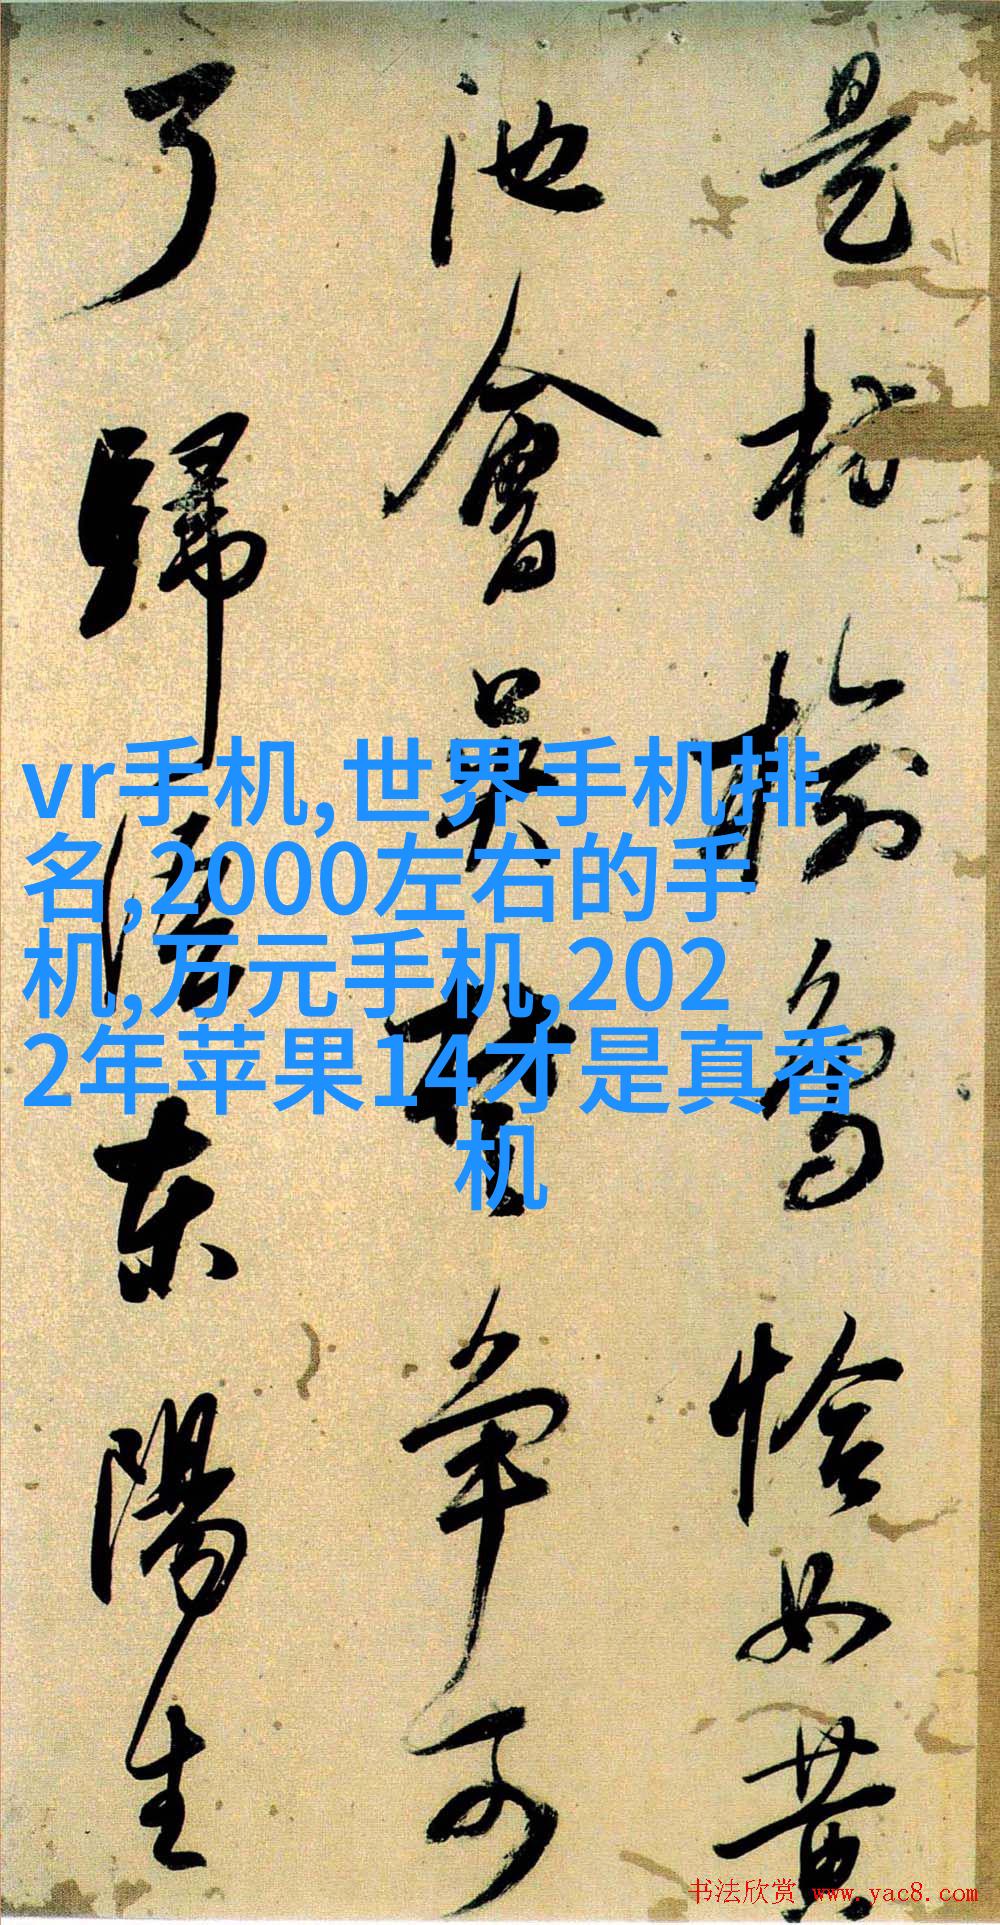 是枋榆烏恰如黄
池會吴楚争可
了歸語东陽生
vr手机,世界手机排
名,2000左右的手
机,万元手机,202
2年苹果14才是真香
机
书法欣赏 www.yac8.com